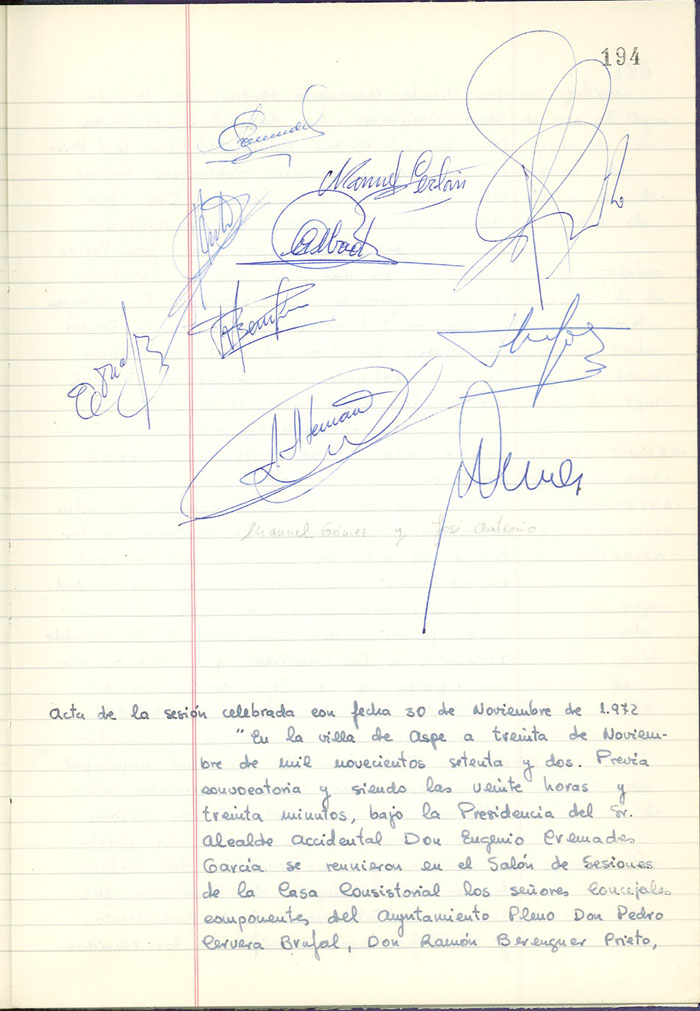 194
Manuel
Abad
Manuel Gómez y José Antonio
Acta de la sesión celebrada con fecha 30 de Noviembre de 1.972
"En la villa de Aspe a treinta de Noviem-
bre de mil novecientos setenta y dos. Previa
convocatoria y siendo las veinte horas y
treinta minutos, bajo la Presidencia del Sr.
Alcalde Accidental Don Eugenio Cremades
García se reunieron en el Salón de Sesiones
de la Casa Consistorial los señores Concejales
componentes del Ayuntamiento Pleno Don Pedro
Cervera Brufal, Don Ramón Berenguer Prieto,